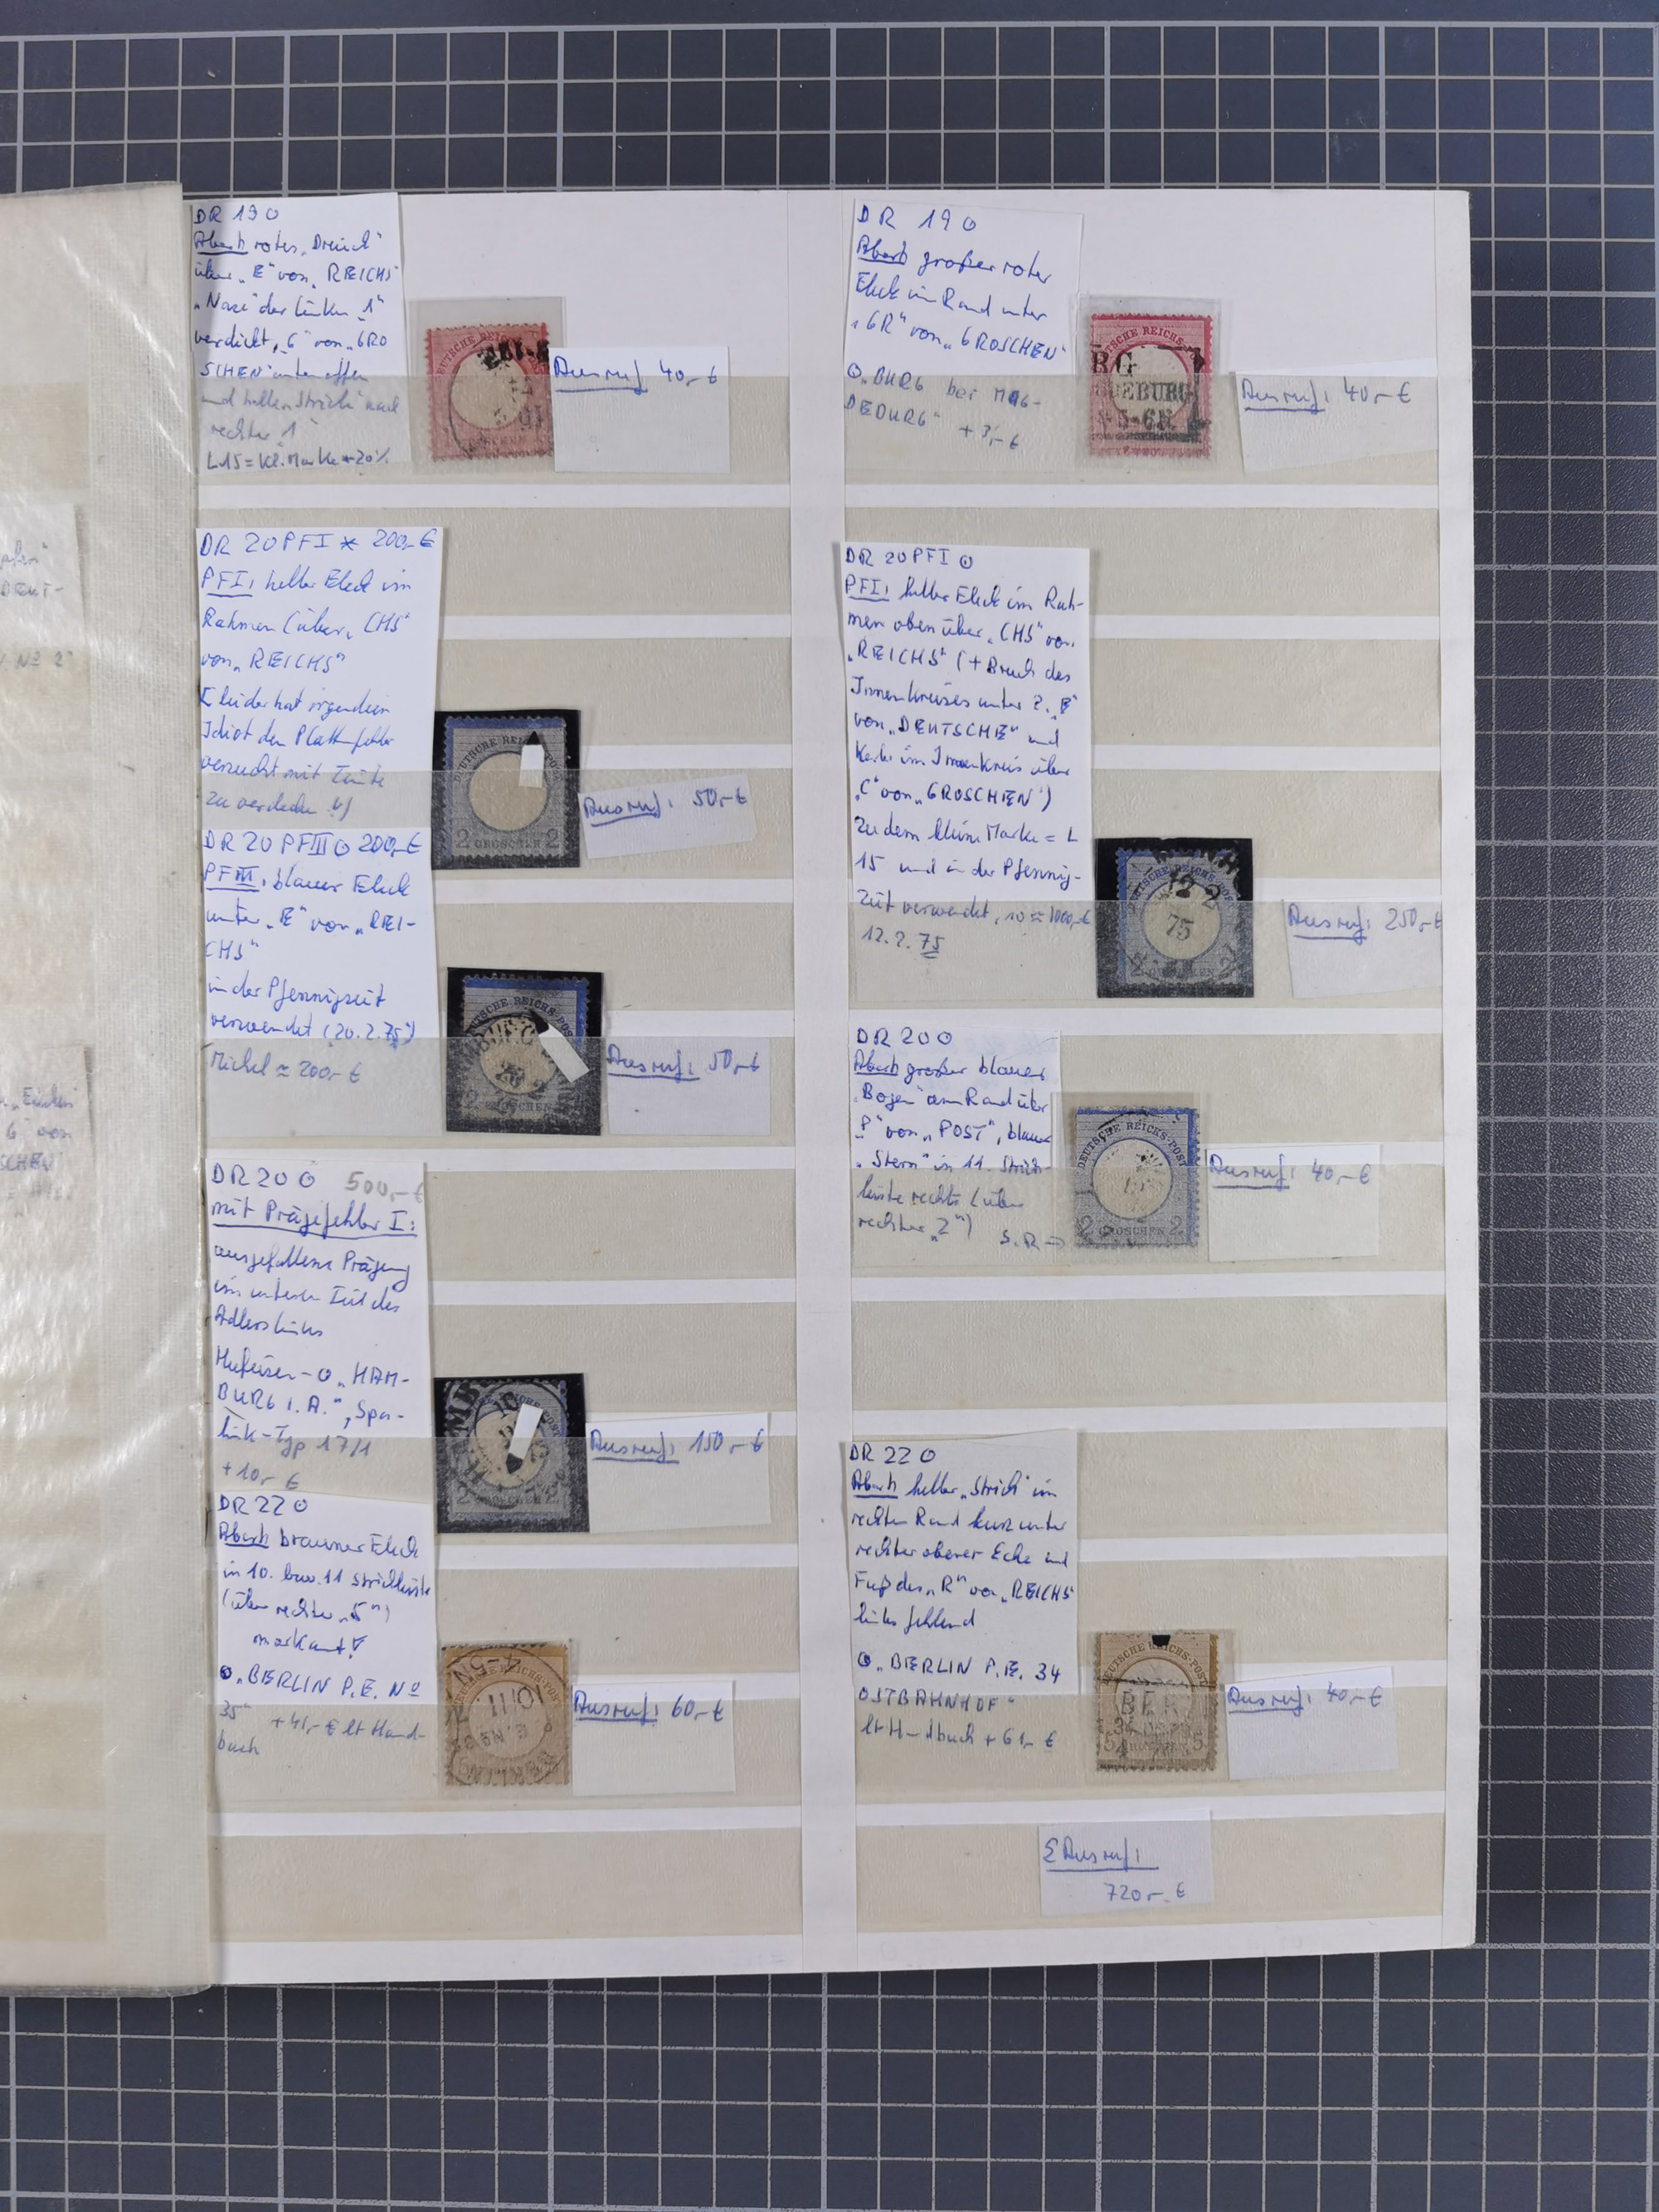 DR 19 ⊙
Abart rotes „Dreieck"
über „E" von „REICHS"
„Nase" der linken „1"
verdickt, „G" von „GRO
SCHEN" unten offen
und heller „Strich" nach
rechter „1"
L15 = kl. Marke +20%
Ausruf 40,-€
DR 20 PF I * 200,-€
PF I: heller Fleck im
Rahmen (über „CHS"
von „REICHS"
[leider hat irgendein
Idiot den Plattenfehler
versucht mit Tinte
zu verdecken !)
Ausruf: 50,-€
DR 20 PF III ⊙ 200,-€
PF III: blauer Fleck
unter „E" von „REI-
CHS"
in der Pfennigzeit
verwendet (20.2.75)
Michel ≈ 200,-€
Ausruf: 50,-€
DR 20 ⊙ 500,-€
mit Prägefehler I:
ausgefallene Prägung
im unteren Teil des
Adlers links
Hufeisen-⊙ „HAM-
BURG I.A.", Spa-
link-Typ 17/1
+10,-€
Ausruf: 150,-€
DR 22 ⊙
Abart brauner Fleck
in 10. bzw. 11 Strichleiste
(über rechter „5")
markant!
⊙ „BERLIN P.E. No
35" +41,-€ lt Hand-
buch
Ausruf: 60,-€
DR 19 ⊙
Abart großer roter
Fleck im Rand unter
„GR" von „GROSCHEN"
⊙ „BURG bei MAG-
DEBURG" +3,-€
BG
DEBURG
5-6N
Ausruf: 40,-€
DR 20 PF I ⊙
PF I: heller Fleck im Rah-
men oben über „CHS" von
„REICHS" (+ Bruch des
Innenkreises unter 2. „E"
von „DEUTSCHE" und
Kerbe im Innenkreis über
„C" von „GROSCHEN")
Zudem kleine Marke = L
15 und in der Pfennig-
zeit verwendet,
12.2.75
12 2
75
Ausruf: 250,-€
DR 20 ⊙
Abart großer blauer
„Bogen" am Rand über
„P" von „POST", blauer
„Stern" in 11. Strich-
leiste rechts (über
rechter „2")
S.R →
DEUTSCHE REICHS-POST
2 GROSCHEN 2
Ausruf: 40,-€
DR 22 ⊙
Abart heller „Strich" im
rechten Rand kurz unter
rechter oberer Ecke und
Fuß des „R" von „REICHS"
links fehlend
⊙ „BERLIN P.E. 34
OSTBAHNHOF"
lt Handbuch +61,-€
Ausruf: 40,-€
Σ Ausruf:
720,-€